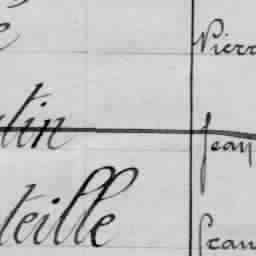 e Pierr
tin Jean
teille Jean